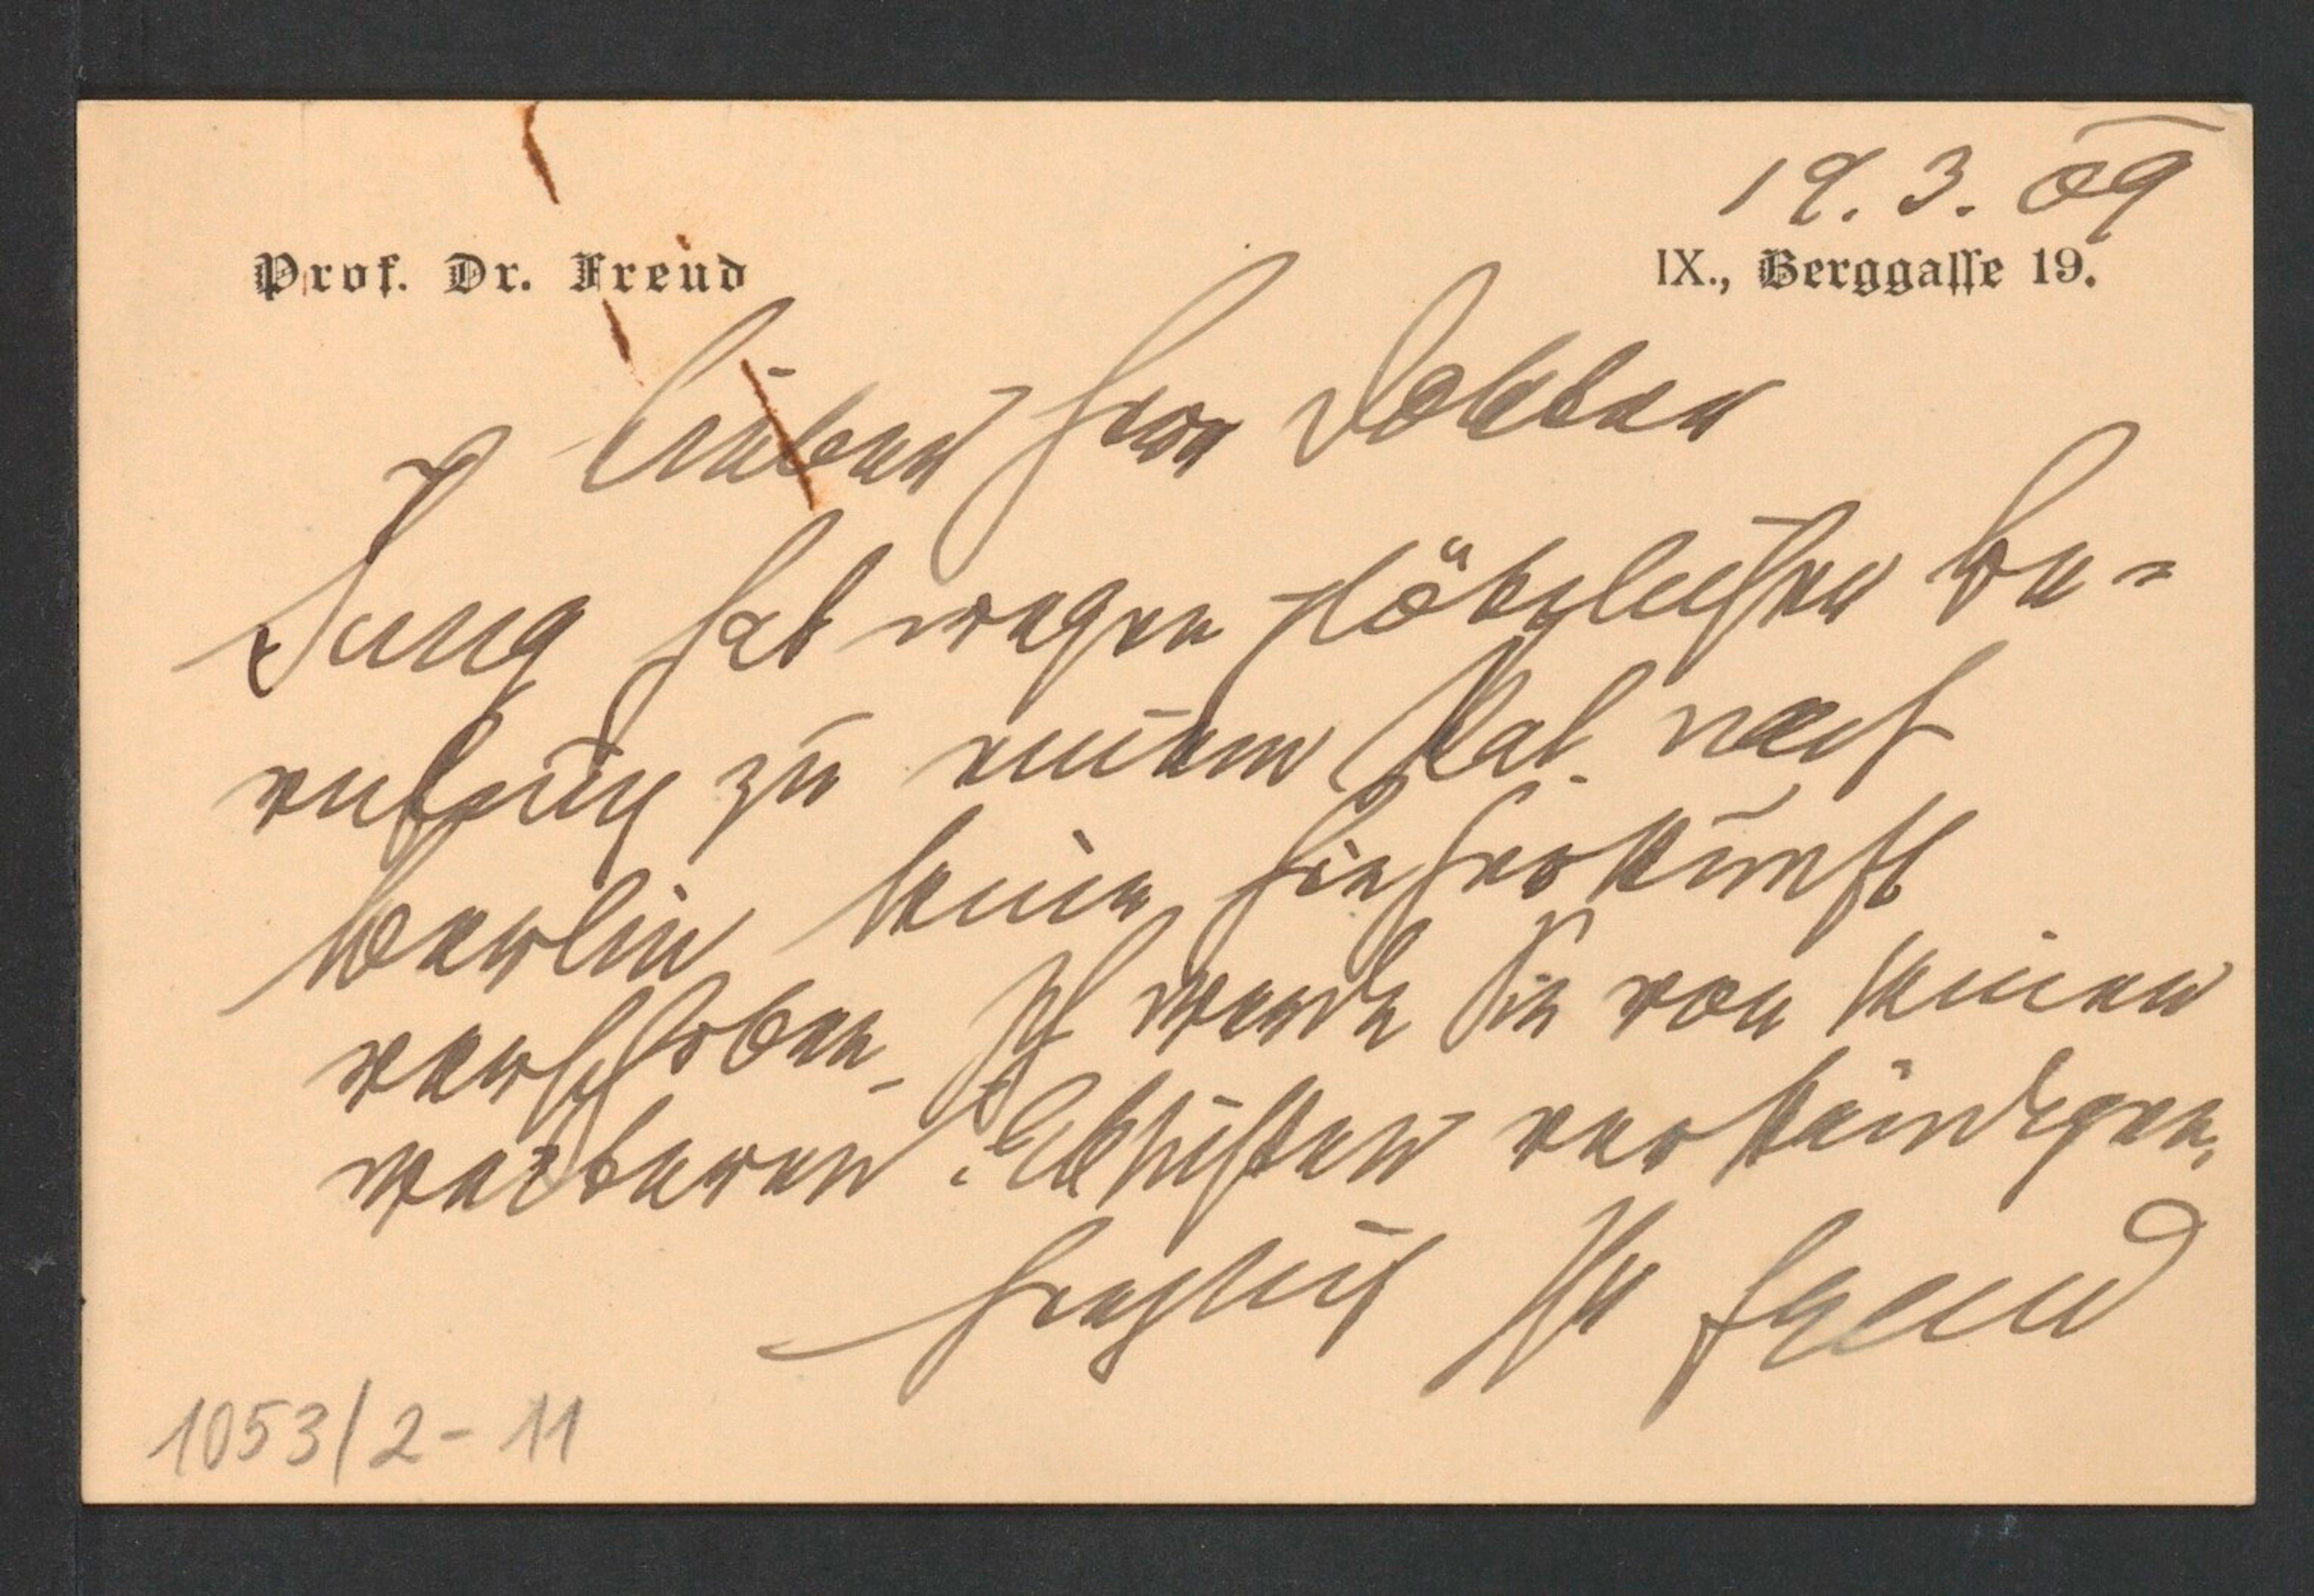 19. 3. 09
Prof. Dr. Freud IX., Berggasse 19.
Lieber Herr Doktor
Jung hat wegen plötzlicher Be-
rufung zu einem Pat. nach
Berlin seine Hieherkunft
verschoben. Ich werde Sie von seinen
weiteren Absichten verständigen.
Herzlich Ihr Freud
1053/2-11